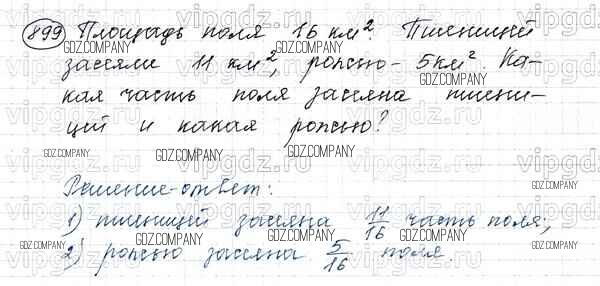 899 Площадь поля 16 км². Пшеницей
засеяли 11 км², рожью - 5 км². Ка-
кая часть поля засеяна пшени-
цей и какая рожью?
Решение-ответ:
1) пшеницей засеяна 11/16 часть поля,
2) рожью засеяна 5/16 поля.
vipgdz.ru
GDZ.COMPANY